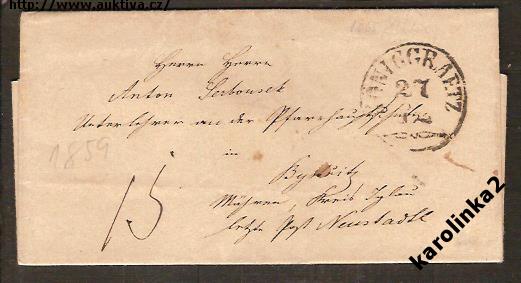 http://www.auktiva.cz/
Herrn Herrn
Anton
KOENIGGRAETZ
27
Unterlehrer an der Pfarrhauptschule
in
1859
Bystřitz
15
Mähren, Kreis Iglau
letzte Post Neustadtl
karolinka2